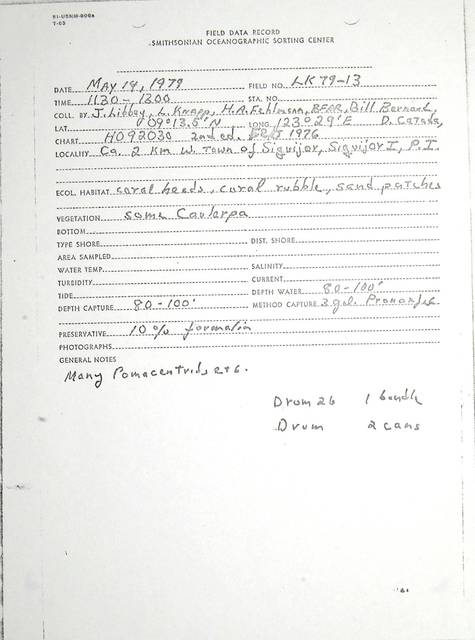 SI-USNM-800a
7-65
FIELD DATA RECORD
SMITHSONIAN OCEANOGRAPHIC SORTING CENTER
DATE May 14, 1979 FIELD NO. LK 79-13
TIME 1130 - 1300 STA. NO.
COLL. BY J. Libbey, L. Knapp, H.A. Fehlmann, BFAR, Bill Bernard,
LAT 09° 13.5' N LONG. 123° 29' E D. Catana,
CHART HO92030 2nd ed. 1976
LOCALITY Ca. 2 km W. Town of Siquijor, Siquijor I, P.I.
ECOL. HABITAT coral heads, coral rubble, sand patches
VEGETATION some Caulerpa
BOTTOM
TYPE SHORE DIST. SHORE
AREA SAMPLED
WATER TEMP. SALINITY
TURBIDITY CURRENT
TIDE DEPTH WATER 80-100'
DEPTH CAPTURE 80-100' METHOD CAPTURE 3 gal. Pronoxfish
PRESERVATIVE 10% formalin
PHOTOGRAPHS
GENERAL NOTES
Many Pomacentrids etc.
Drum 26 1 bundle
Drum 2 cans